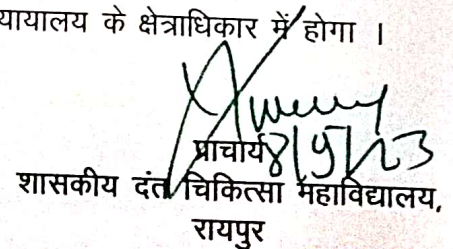 यायालय के क्षेत्राधिकार में होगा ।
प्राचार्य 8/9/23
शासकीय दंत चिकित्सा महाविद्यालय,
रायपुर